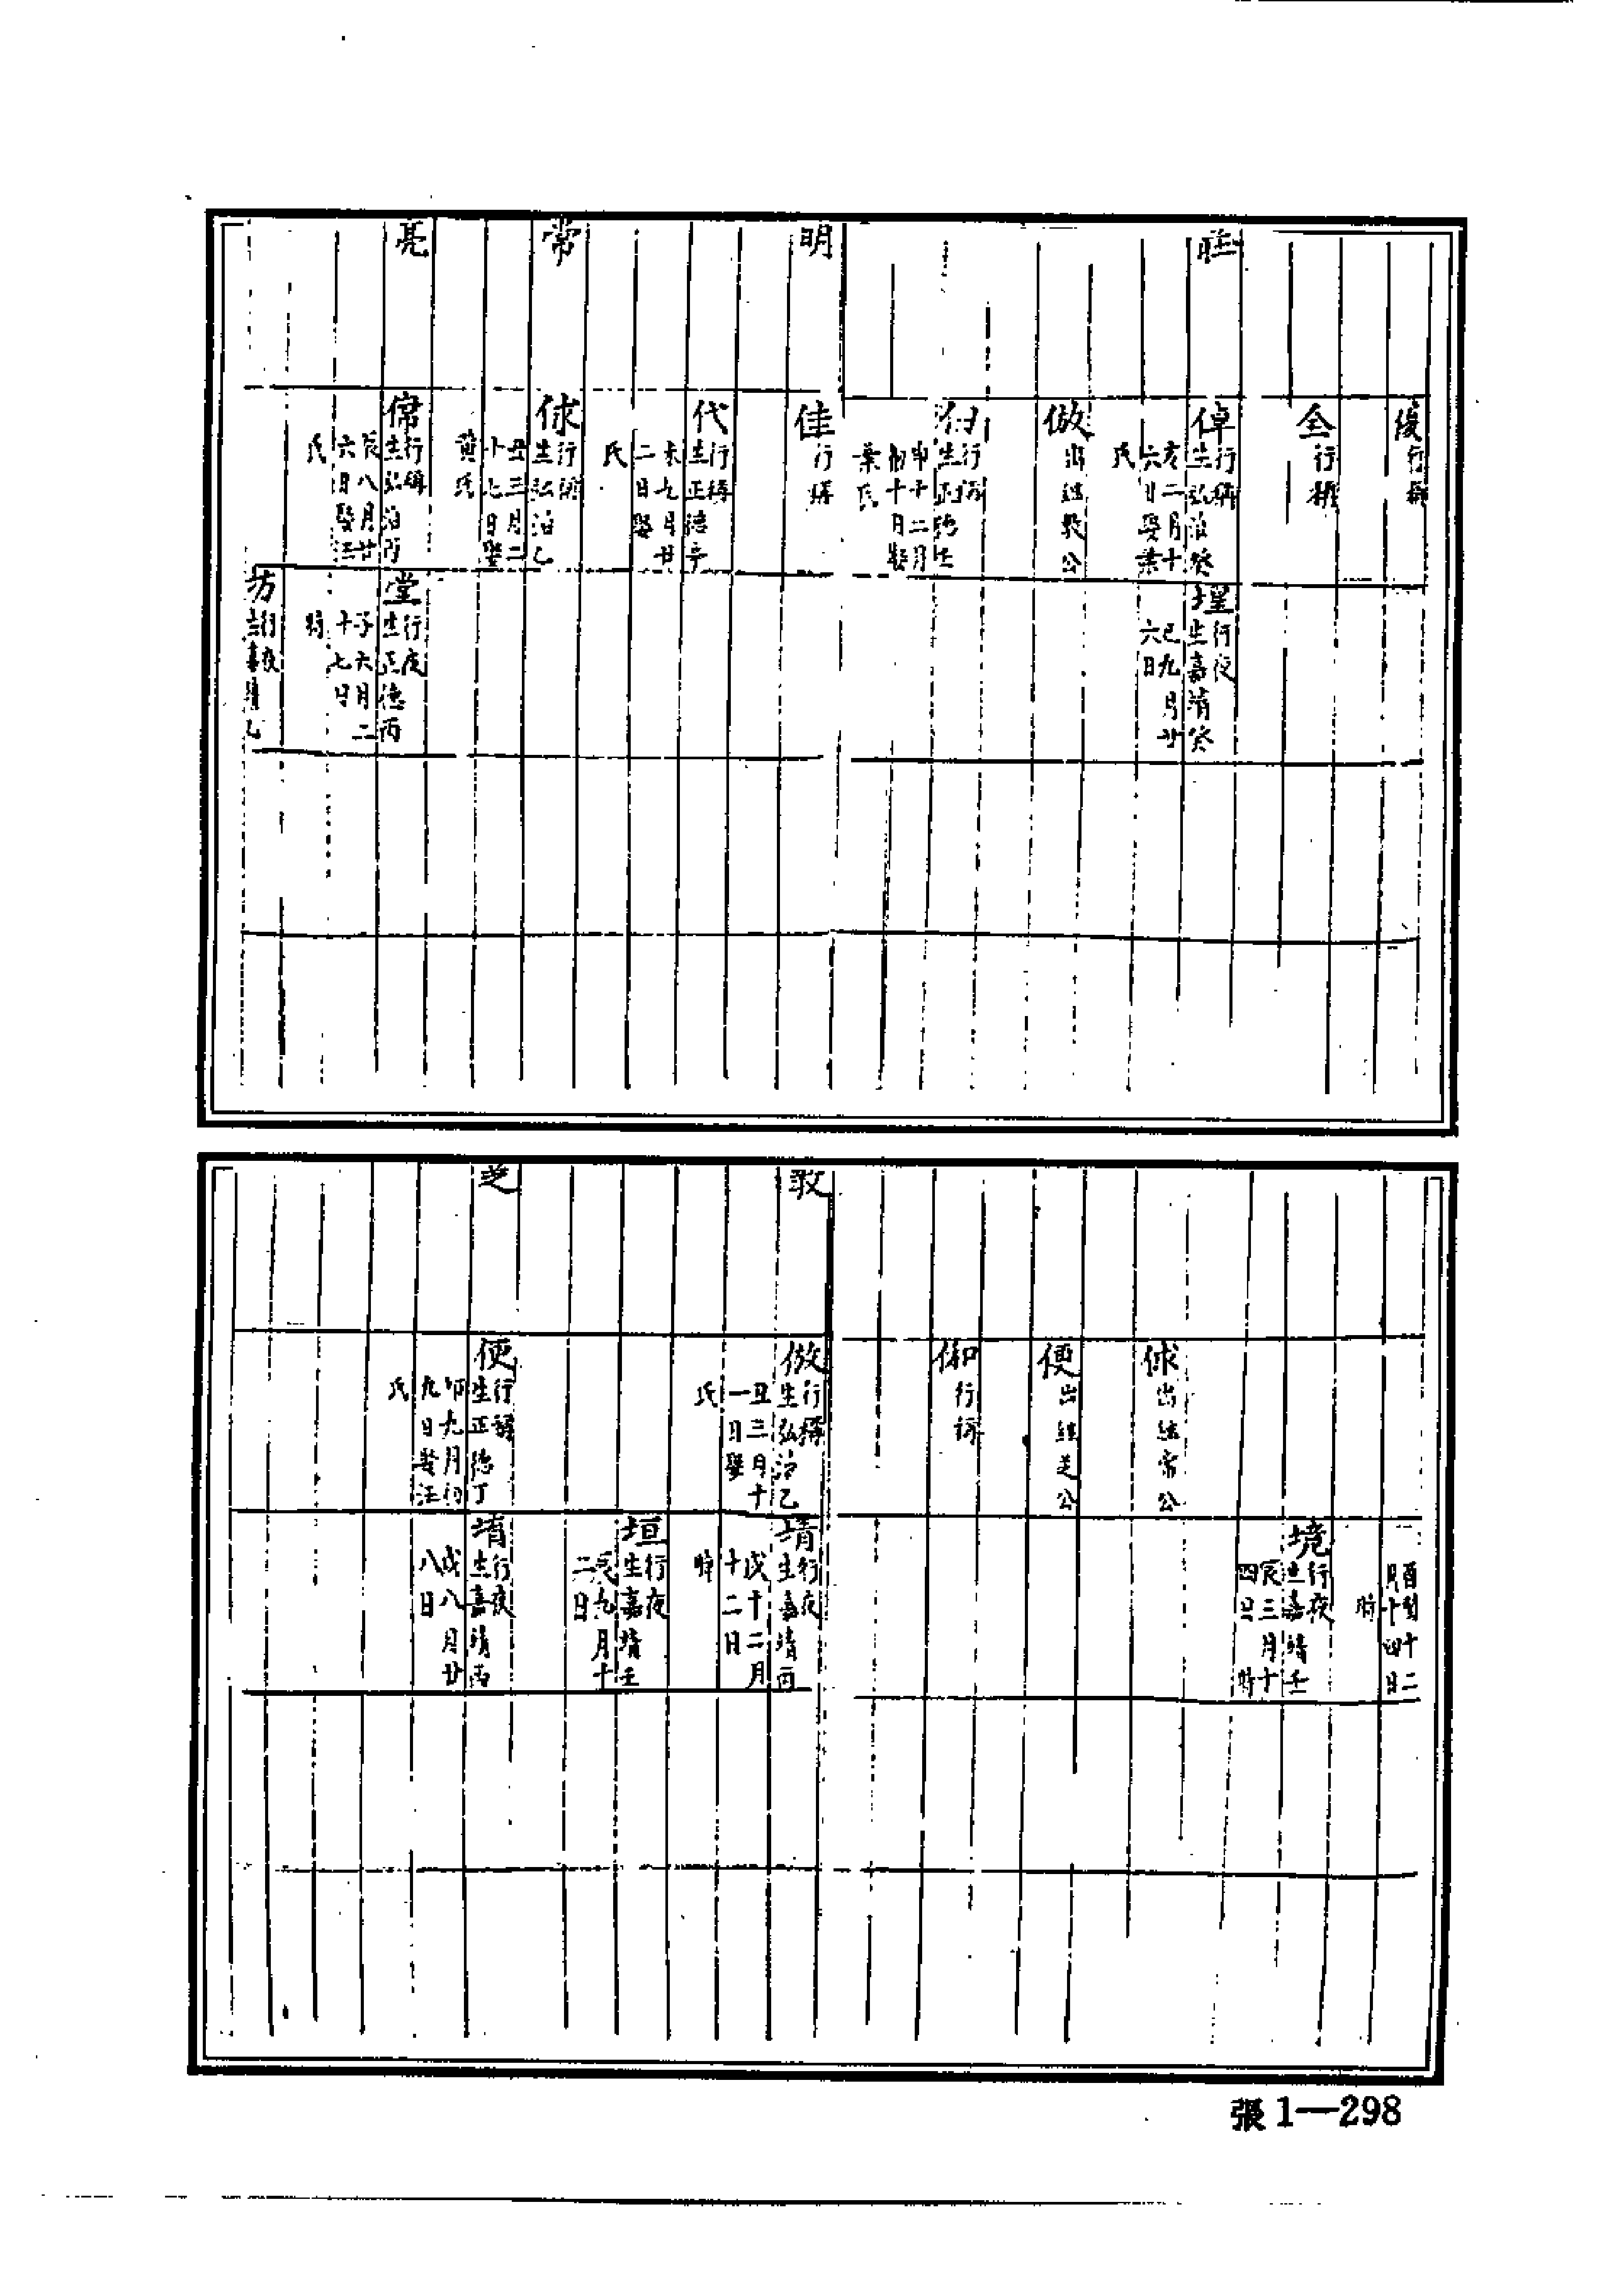 行稱
全行稱
旺
倬行稱
生弘治癸
亥二月十
六日娶葉
氏
埋行夜
生嘉靖癸
巳九月廿
六日
倣出繼敦公
行稱
生正德壬
申十二月
初十月娶
葉氏
明
佳行稱
代行稱
生正德辛
未九月廿
二日娶
氏
常
俅行稱
生弘治乙
丑三月二
十七日娶
黄氏
亮
行稱
生弘治丙
辰八月廿
六日娶汪
氏
堂行夜
生正德丙
子六月二
十七日
時
坊行夜
生嘉靖乙
酉閏十二
月十四日
時
境行夜
生嘉靖壬
辰三月十
四日時
俅出繼常公
便出繼芝公
行稱
敦
倣行稱
生弘治乙
丑三月十
一日娶
氏
靖行夜
生嘉靖丙
戌十二月
十二日
時
垣行夜
生嘉靖壬
辰九月十
二日
芝
便行稱
生正德丁
卯九月初
九日娶汪
氏
堉行夜
生嘉靖丙
戌八月廿
八日
張1—298